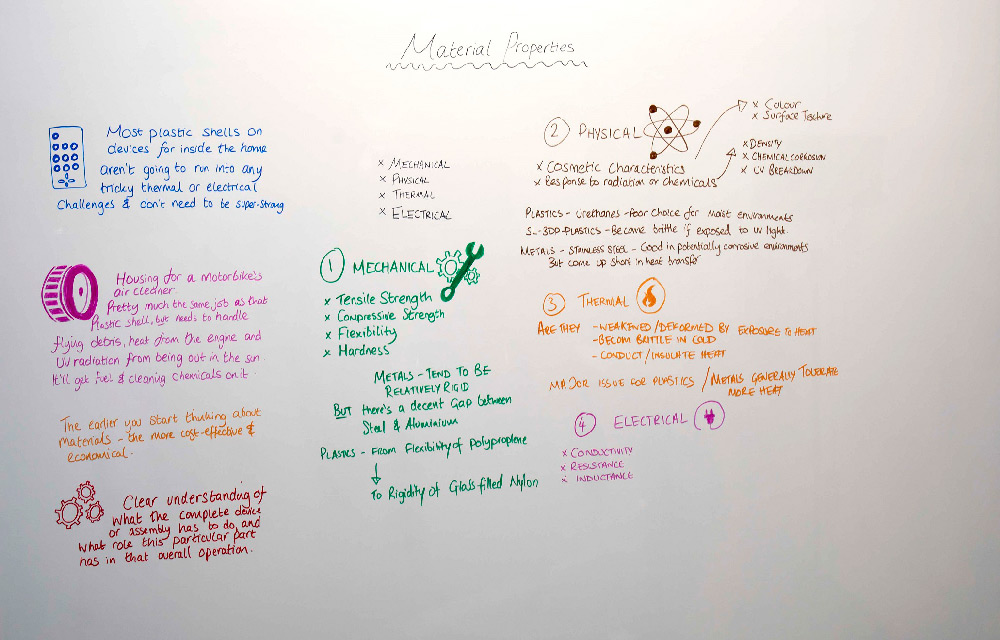 Material Properties
Most plastic shells on
devices for inside the home
aren't going to run into any
tricky thermal or electrical
Challenges & don't need to be super-strong
Housing for a motorbike's
air cleaner.
Pretty much the same job as that
Plastic shell, but needs to handle
flying debris, heat from the engine and
UV radiation from being out in the sun.
It'll get fuel & cleaning chemicals on it.
The earlier you start thinking about
materials - the more cost-effective &
economical.
Clear understanding of
what the complete device
or assembly has to do, and
what role this particular part
has in that overall operation.
x MECHANICAL
x PHYSICAL
x THERMAL
x ELECTRICAL
1 MECHANICAL
x Tensile Strength
x Compressive Strength
x Flexibility
x Hardness
METALS - TEND TO BE
RELATIVELY RIGID
BUT there's a decent Gap between
Steel & Aluminium
PLASTICS - FROM Flexibility of Polyproplene
To Rigidity of Glass filled Nylon
2 PHYSICAL
x Cosmetic Characteristics
x Response to radiation or Chemicals
x Colour
x Surface Texture
x DENSITY
x CHEMICAL CORROSION
x UV BREAKDOWN
PLASTICS - Urethanes - Poor Choice for Moist environments
PLASTICS - Become brittle if exposed to UV light.
METALS - STAINLESS STEEL - Good in potentially corrosive environments
But come up short in heat transfer
3 THERMAL
ARE THEY - WEAKENED / DEFORMED BY EXPOSURE TO HEAT
- BECOM BRITTLE IN COLD
- CONDUCT / INSULATE HEAT
MAJOR ISSUE FOR PLASTICS / METALS GENERALLY TOLERATE
MORE HEAT
4 ELECTRICAL
x CONDUCTIVITY
x RESISTANCE
x INDUCTANCE